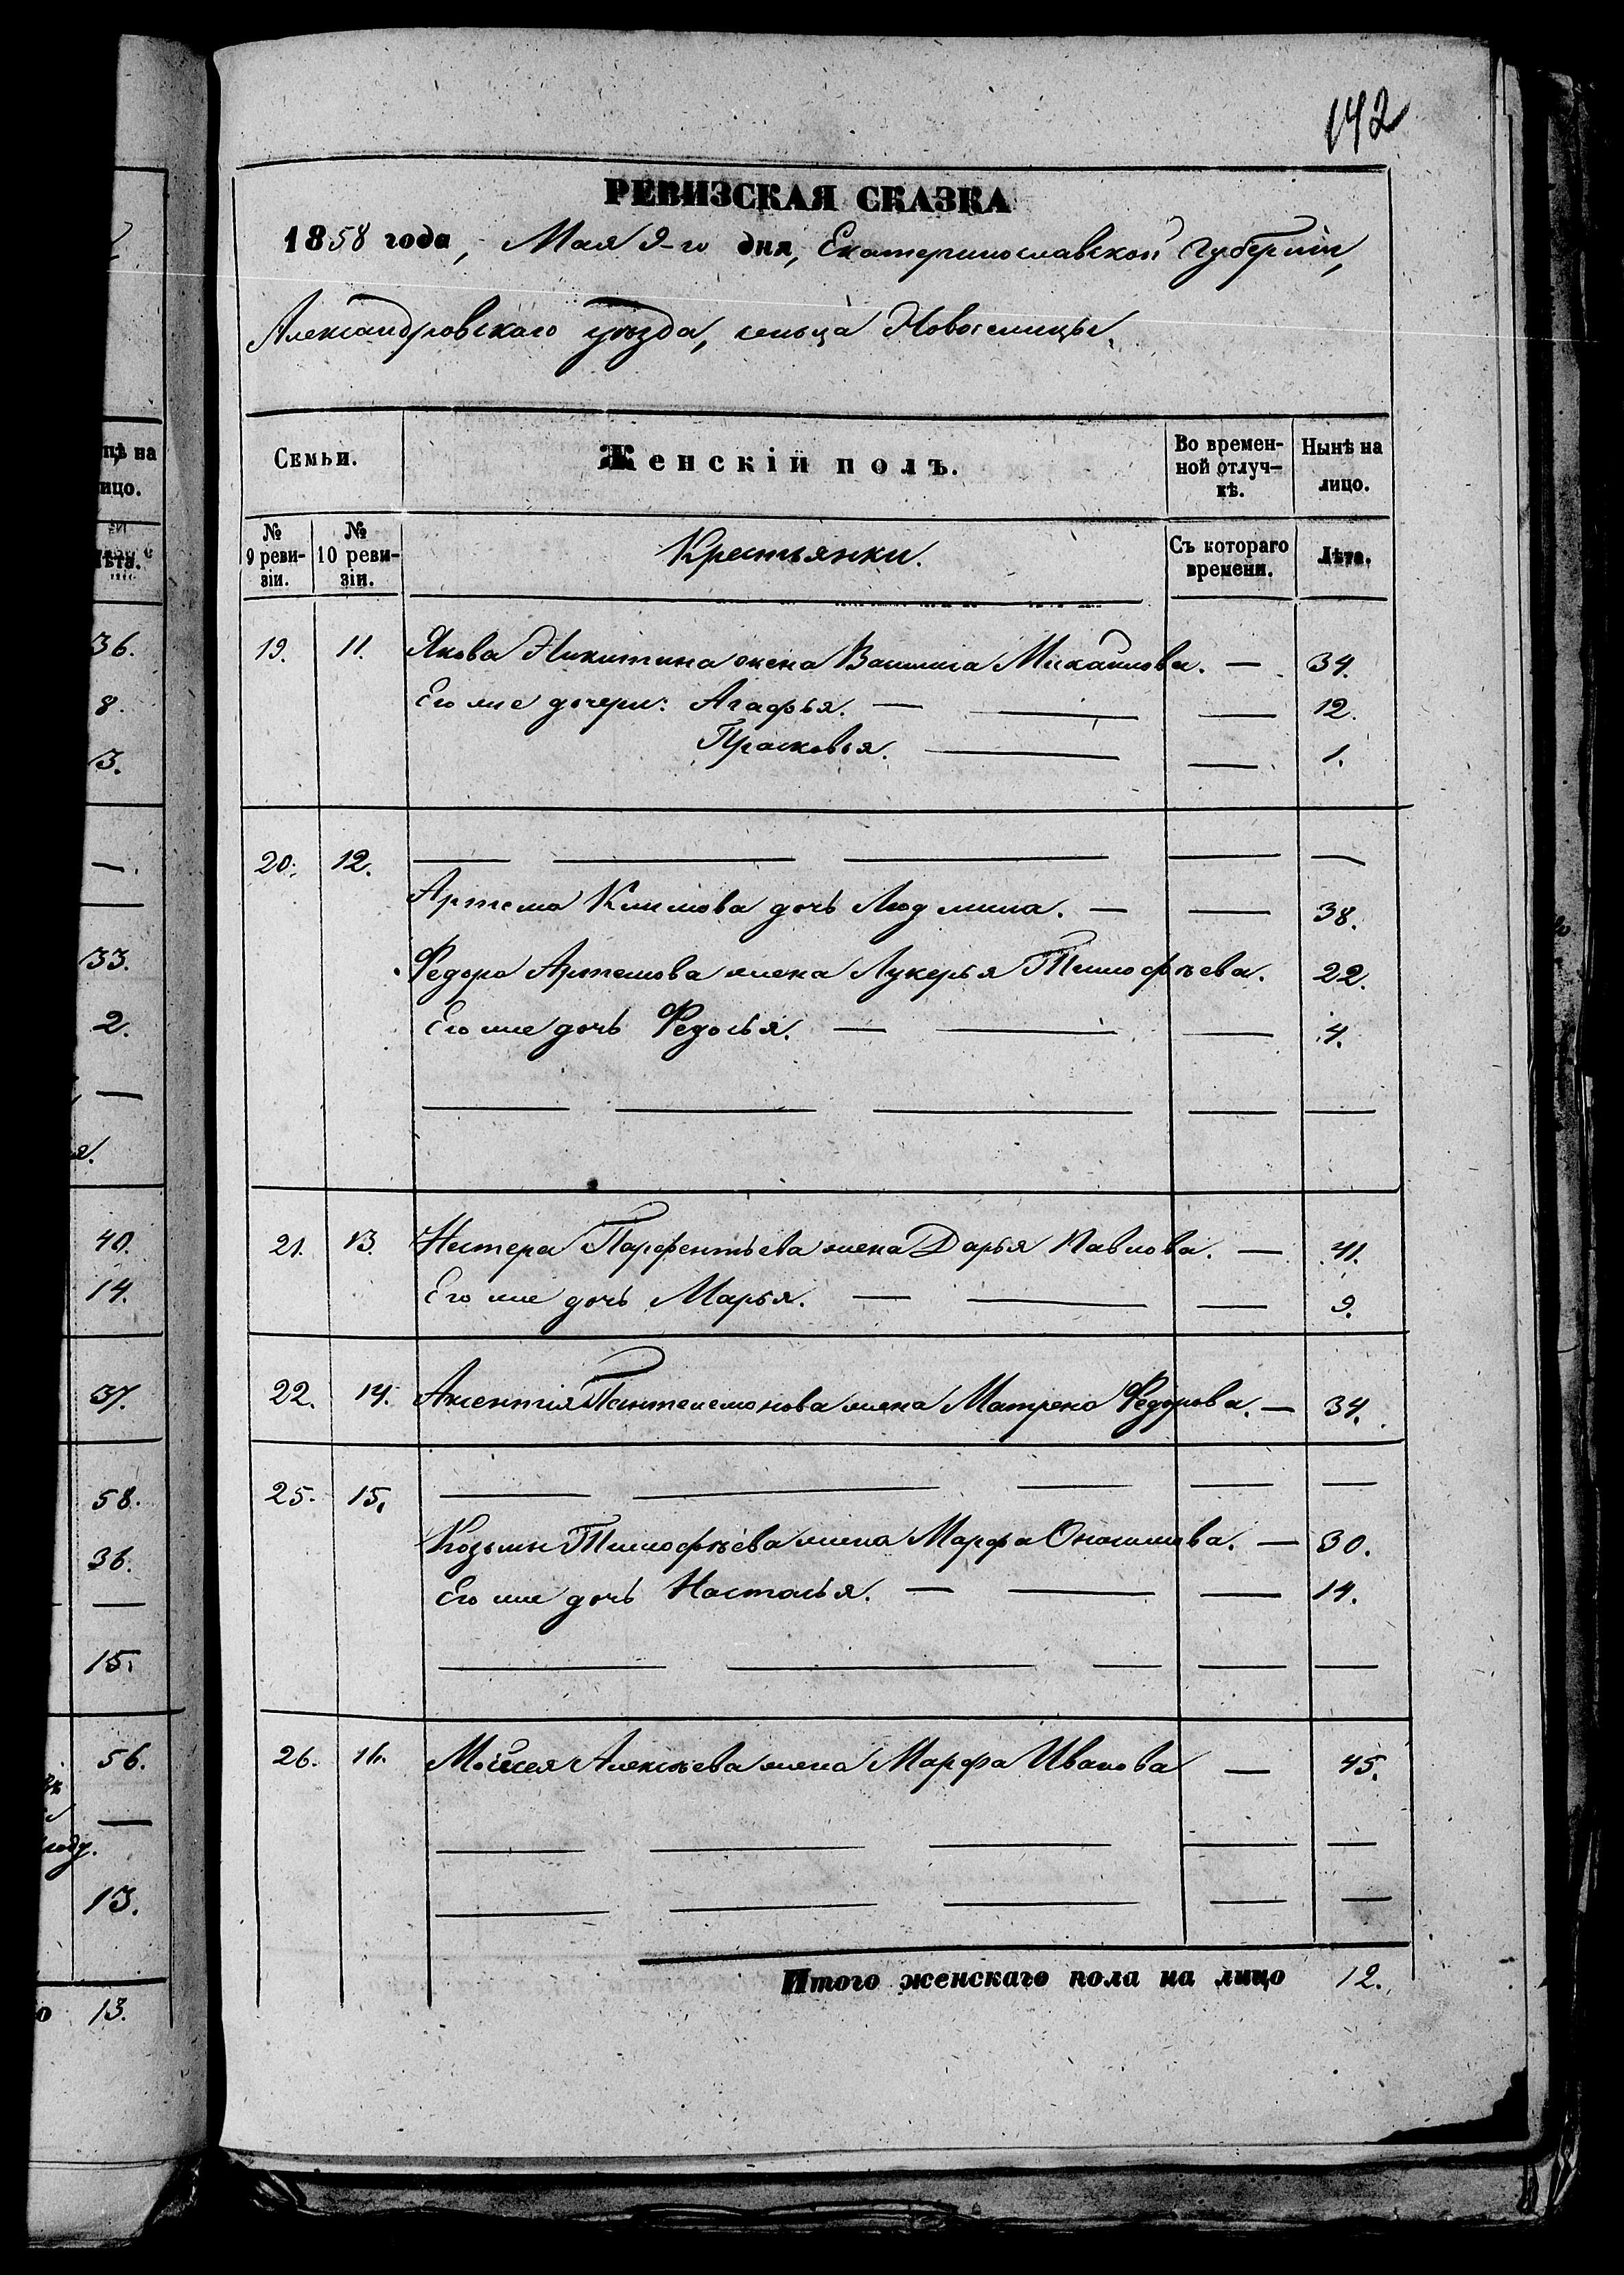 142
РЕВИЗСКАЯ СКАЗКА
1858 года, Мая 9-го дня, Екатеринославской Губерніи,
Александровскаго уѣзда, сельца Новоселицы.
Семьи. Женскій полъ. Во времен-ной отлуч-кѣ. Нынѣ на лицо.
№ 9 реви-зіи. № 10 реви-зіи. Крестьянки. Съ котораго времени. Лѣта.
19. 11. Якова Никитина жена Михайлова. — 34.
Его же дочери: Агафья. — — — 12.
Прасковья. — — 1.
20. 12. — — — — —
Артема Климова дочь Людмила. — — 38.
Федора Артемова жена Лукерья Тимофѣева. 22.
Его же дочь Федосья. — — — 4.
— — — — —
21. 13. Нестера Парфентьева жена Дарья Павлова. — 41.
Его же дочь Марья. — — — 9.
22. 14. Аксентія Пантелемонова жена Матрена Федорова. — 34.
25. 15. — — — — —
Козьмы Тимофѣева жена Марфа Онисимова. — 30.
Его же дочь Настасья. — — — 14.
— — — — —
26. 16. Мойсея Алексѣева жена Марфа Иванова — 45.
— — — — —
— — — — —
Итого женскаго пола на лицо 12.
нѣ на
ицо.
ѣта.
36.
8.
3.
—
33.
2.
—
40.
14.
37.
58.
36.
—
15.
56.
—
году.
13.
о 13.